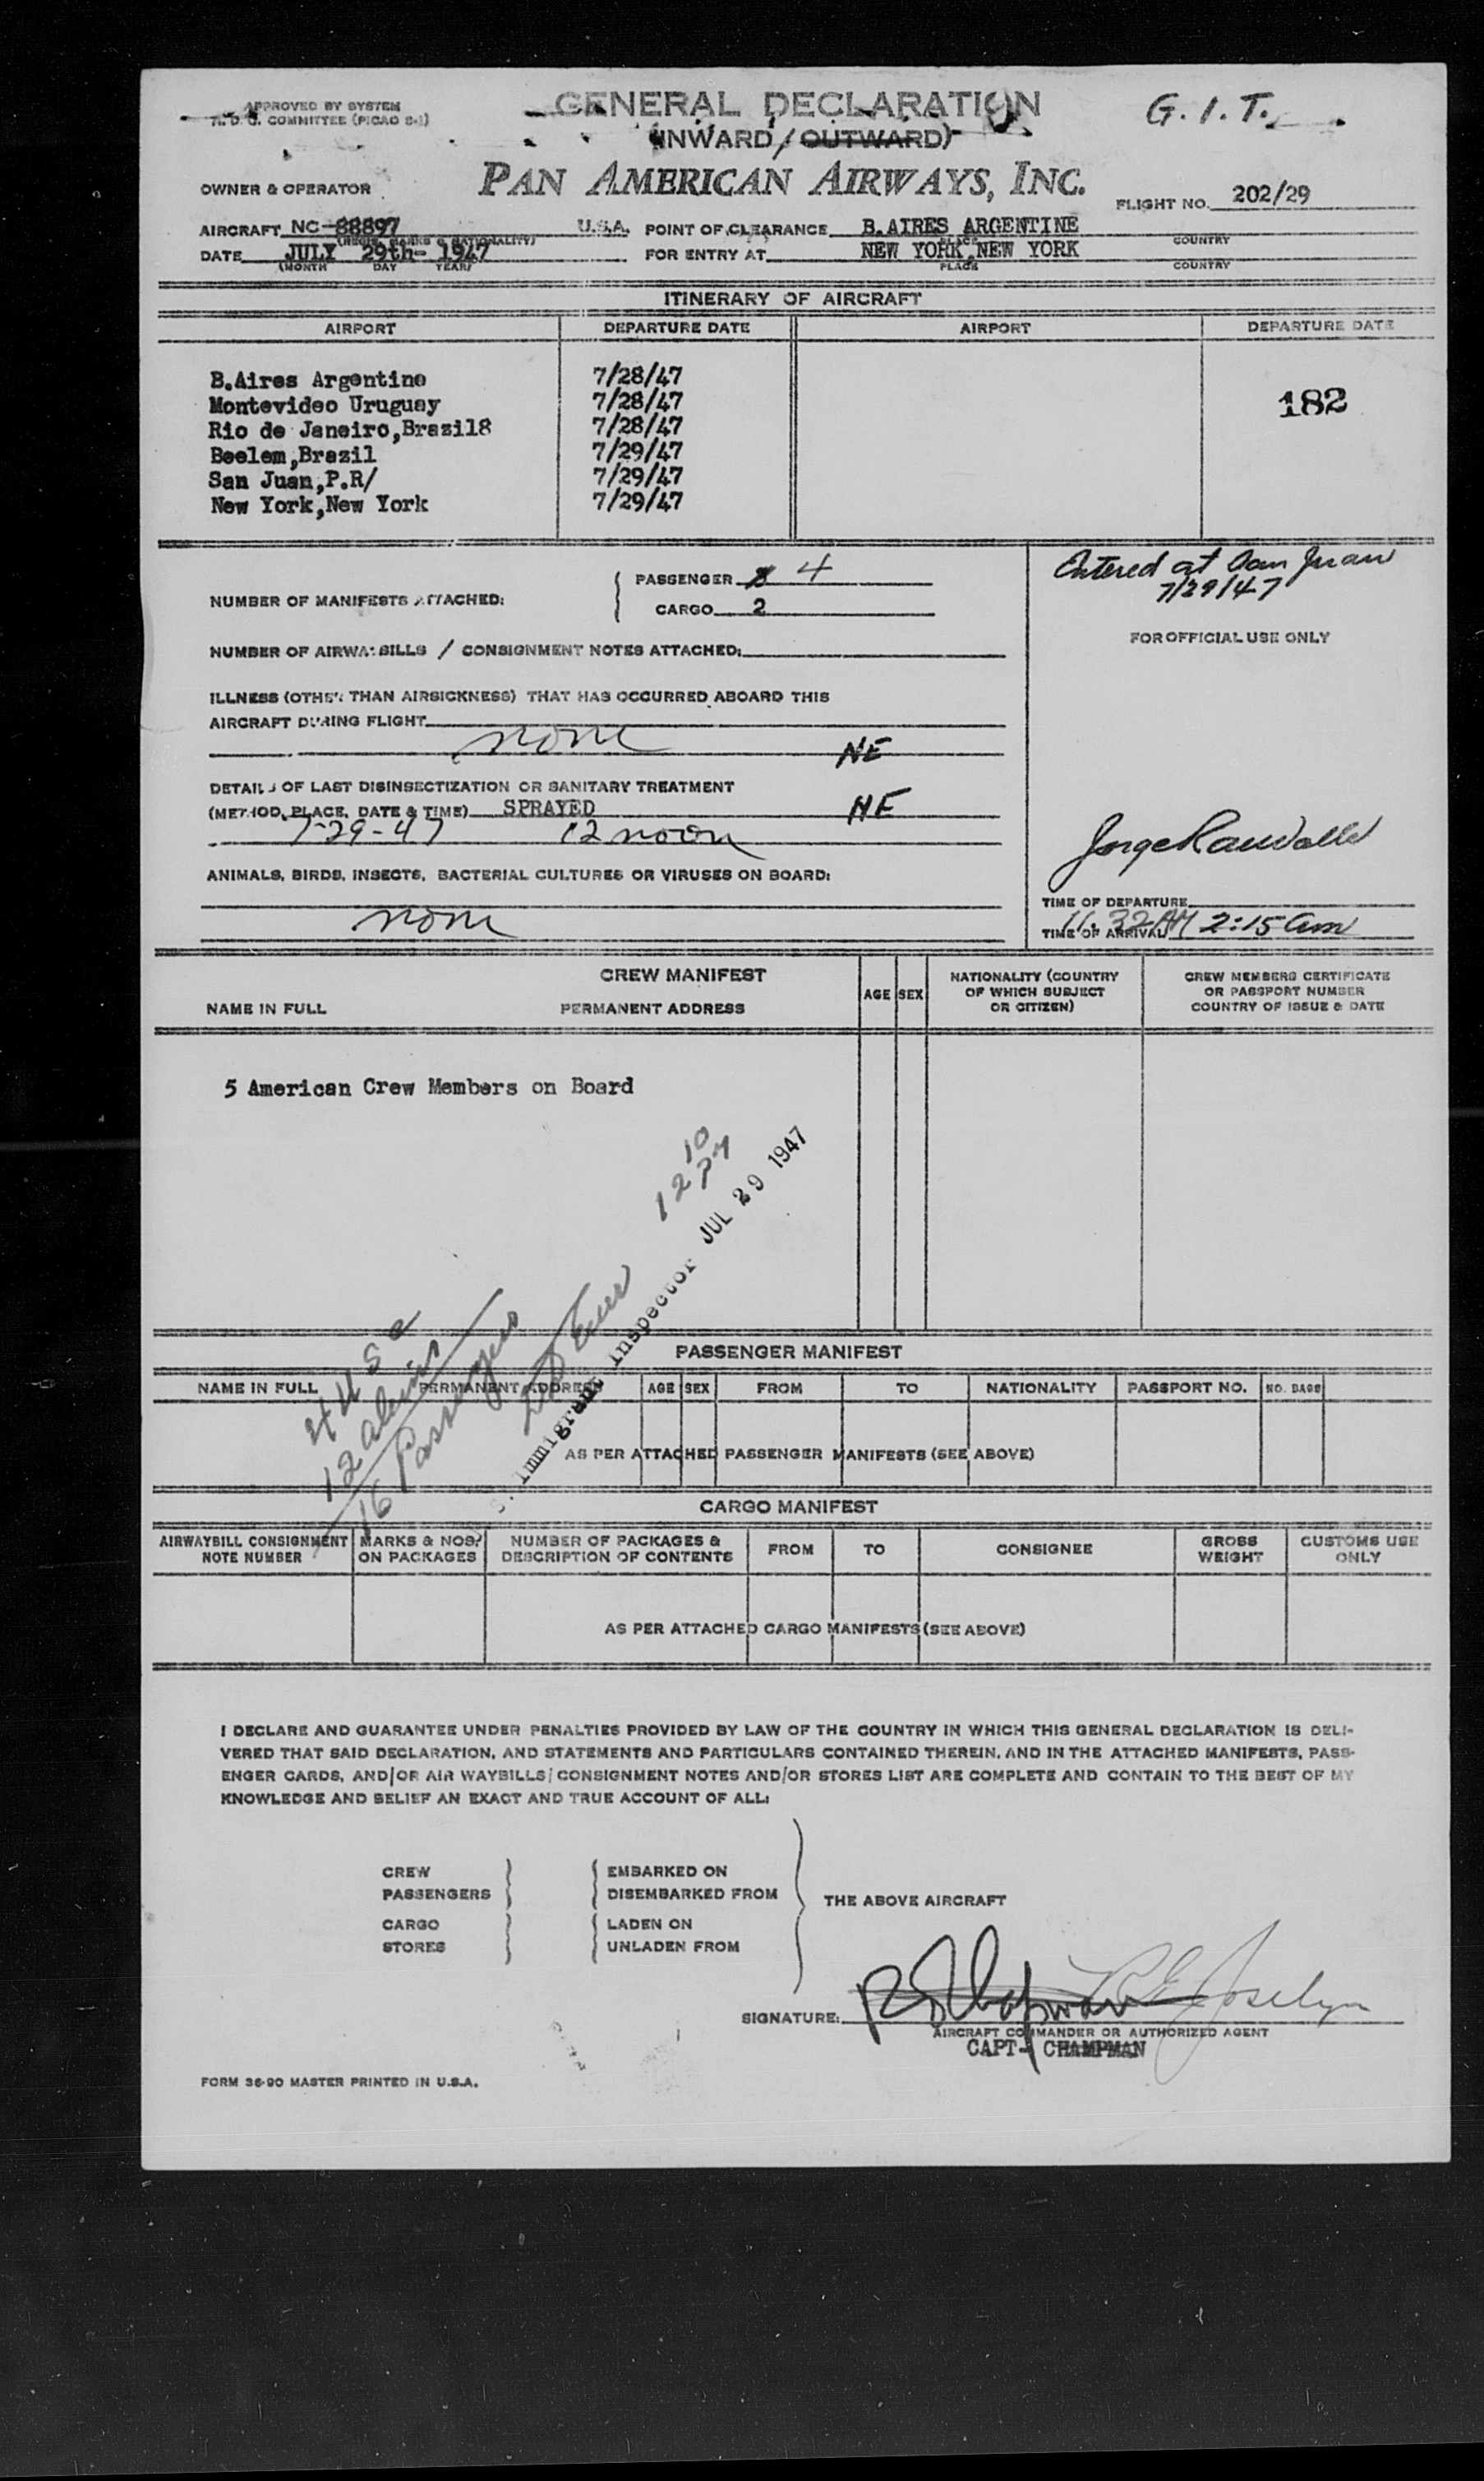 APPROVED BY SYSTEM
COMMITTEE (PICAO S-1)
GENERAL DECLARATION
(INWARD / OUTWARD)
G.I.T.
PAN AMERICAN AIRWAYS, INC.
OWNER & OPERATOR
FLIGHT NO. 202/29
AIRCRAFT NC-88897 U.S.A. POINT OF CLEARANCE B.AIRES ARGENTINE
(REGIS. MARKS & NATIONALITY) PLACE COUNTRY
DATE JULY 29th- 1947 FOR ENTRY AT NEW YORK,NEW YORK
(MONTH DAY YEAR) PLACE COUNTRY
ITINERARY OF AIRCRAFT
AIRPORT DEPARTURE DATE AIRPORT DEPARTURE DATE
B.Aires Argentine 7/28/47
182
Montevideo Uruguay 7/28/47
Rio de Janeiro,Brazil8 7/28/47
Beelem,Brazil 7/29/47
San Juan,P.R/ 7/29/47
New York,New York 7/29/47
Entered at San Juan
7/29/47
NUMBER OF MANIFESTS ATTACHED:
PASSENGER 4
CARGO 2
FOR OFFICIAL USE ONLY
NUMBER OF AIRWAYBILLS / CONSIGNMENT NOTES ATTACHED:
ILLNESS (OTHER THAN AIRSICKNESS) THAT HAS OCCURRED ABOARD THIS
AIRCRAFT DURING FLIGHT
none NE
DETAILS OF LAST DISINSECTIZATION OR SANITARY TREATMENT
(METHOD, PLACE, DATE & TIME) SPRAYED NE
7-29-47 12 noon
ANIMALS, BIRDS, INSECTS, BACTERIAL CULTURES OR VIRUSES ON BOARD:
none
Jorge
TIME OF DEPARTURE
11.32AM 2:15am
TIME OF ARRIVAL
CREW MANIFEST
NAME IN FULL PERMANENT ADDRESS
AGE SEX
NATIONALITY (COUNTRY
OF WHICH SUBJECT
OR CITIZEN)
CREW MEMBERS CERTIFICATE
OR PASSPORT NUMBER
COUNTRY OF ISSUE & DATE
5 American Crew Members on Board
12 10 PM
Immigrant Inspector JUL 29 1947
4 USC
12 aliens
16 Passengers
PASSENGER MANIFEST
NAME IN FULL PERMANENT ADDRESS AGE SEX FROM TO NATIONALITY PASSPORT NO. NO. BAGS
AS PER ATTACHED PASSENGER MANIFESTS (SEE ABOVE)
CARGO MANIFEST
AIRWAYBILL CONSIGNMENT
NOTE NUMBER
MARKS & NOS.
ON PACKAGES
NUMBER OF PACKAGES &
DESCRIPTION OF CONTENTS
FROM TO CONSIGNEE
GROSS
WEIGHT
CUSTOMS USE
ONLY
AS PER ATTACHED CARGO MANIFESTS (SEE ABOVE)
I DECLARE AND GUARANTEE UNDER PENALTIES PROVIDED BY LAW OF THE COUNTRY IN WHICH THIS GENERAL DECLARATION IS DELI-
VERED THAT SAID DECLARATION, AND STATEMENTS AND PARTICULARS CONTAINED THEREIN, AND IN THE ATTACHED MANIFESTS, PASS-
ENGER CARDS, AND/OR AIR WAYBILLS/CONSIGNMENT NOTES AND/OR STORES LIST ARE COMPLETE AND CONTAIN TO THE BEST OF MY
KNOWLEDGE AND BELIEF AN EXACT AND TRUE ACCOUNT OF ALL:
CREW
PASSENGERS
CARGO
STORES
EMBARKED ON
DISEMBARKED FROM
LADEN ON
UNLADEN FROM
THE ABOVE AIRCRAFT
SIGNATURE: R E Joselyn
AIRCRAFT COMMANDER OR AUTHORIZED AGENT
CAPT- CHAMPMAN
FORM 36-90 MASTER PRINTED IN U.S.A.